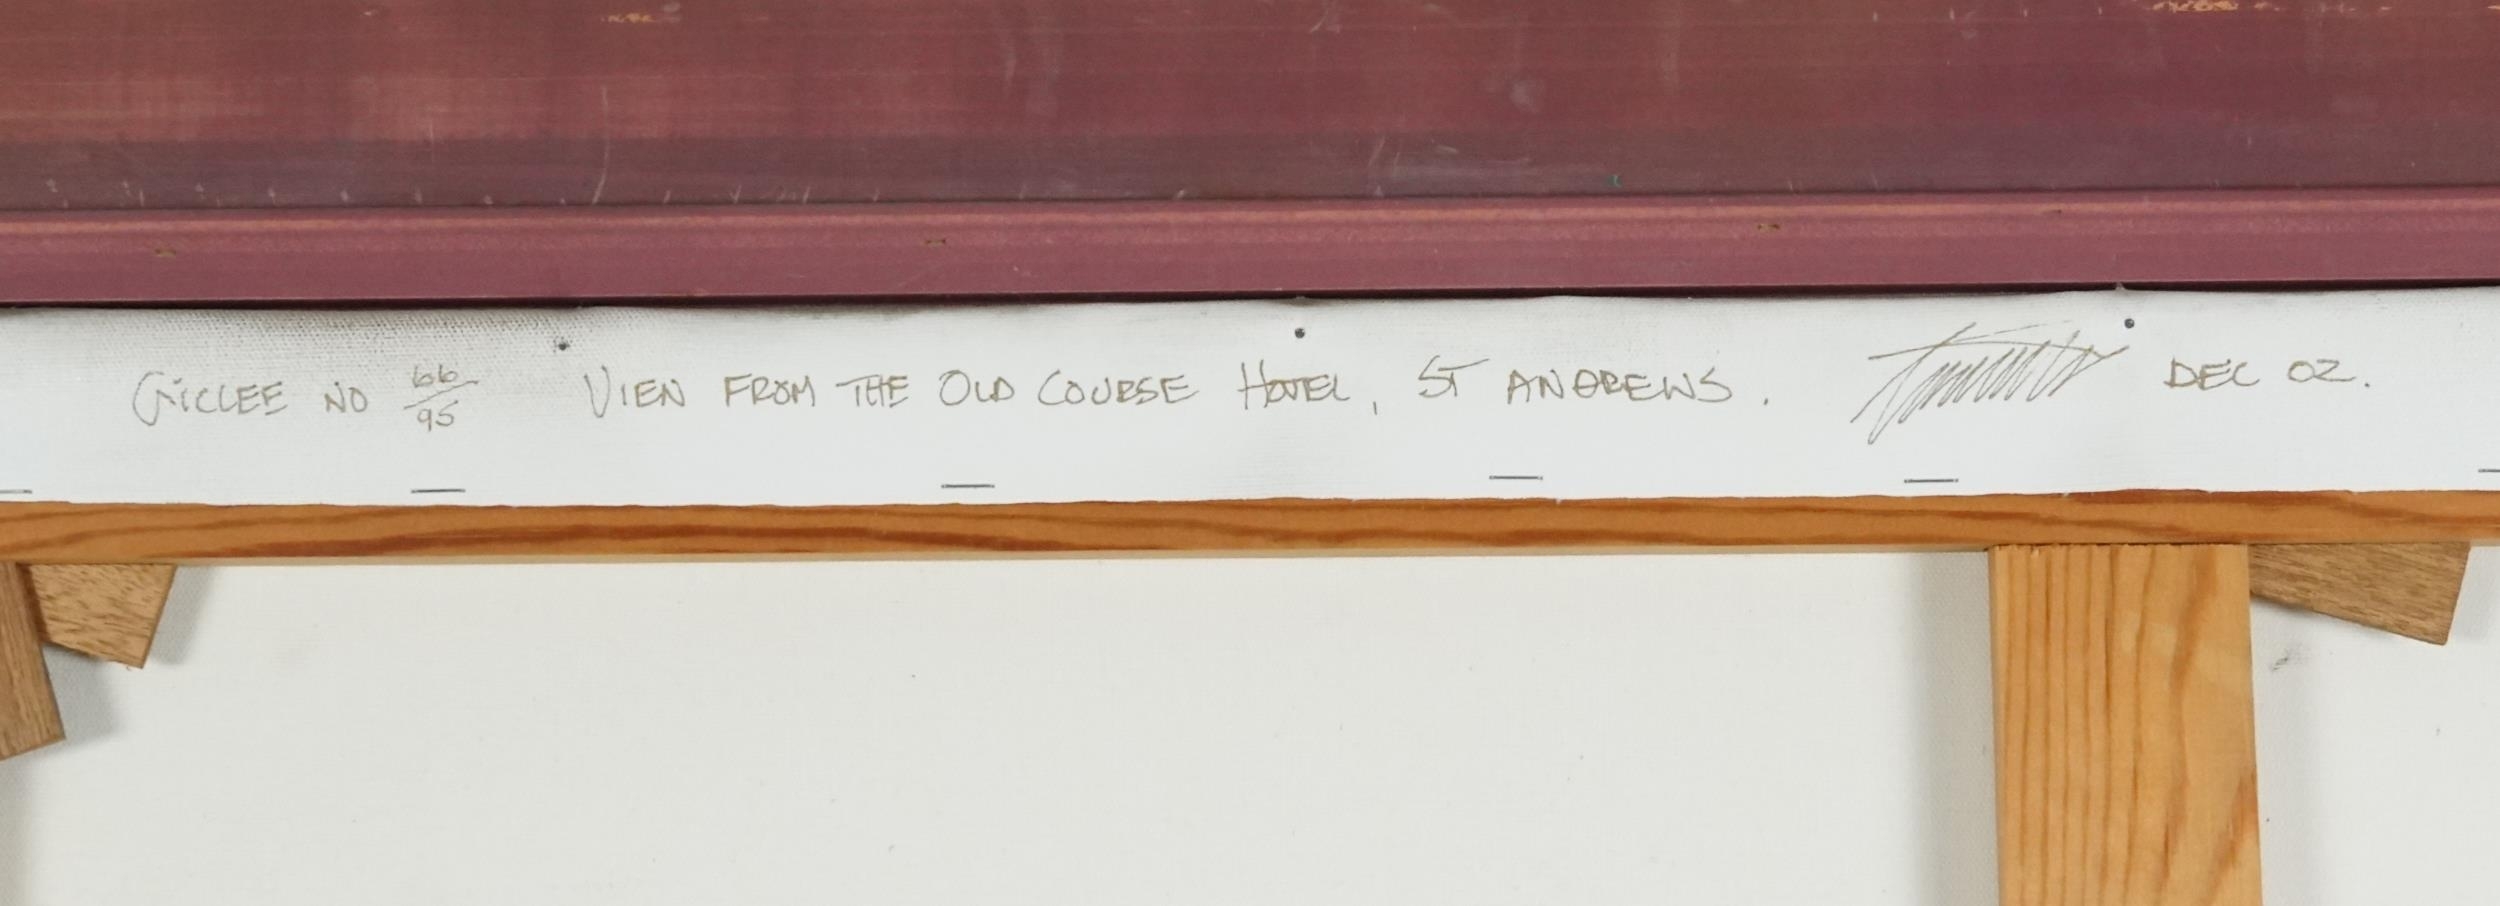 GICLEE NO 66/95 VIEW FROM THE OLD COURSE HOTEL, ST ANDREWS. DEC 02.